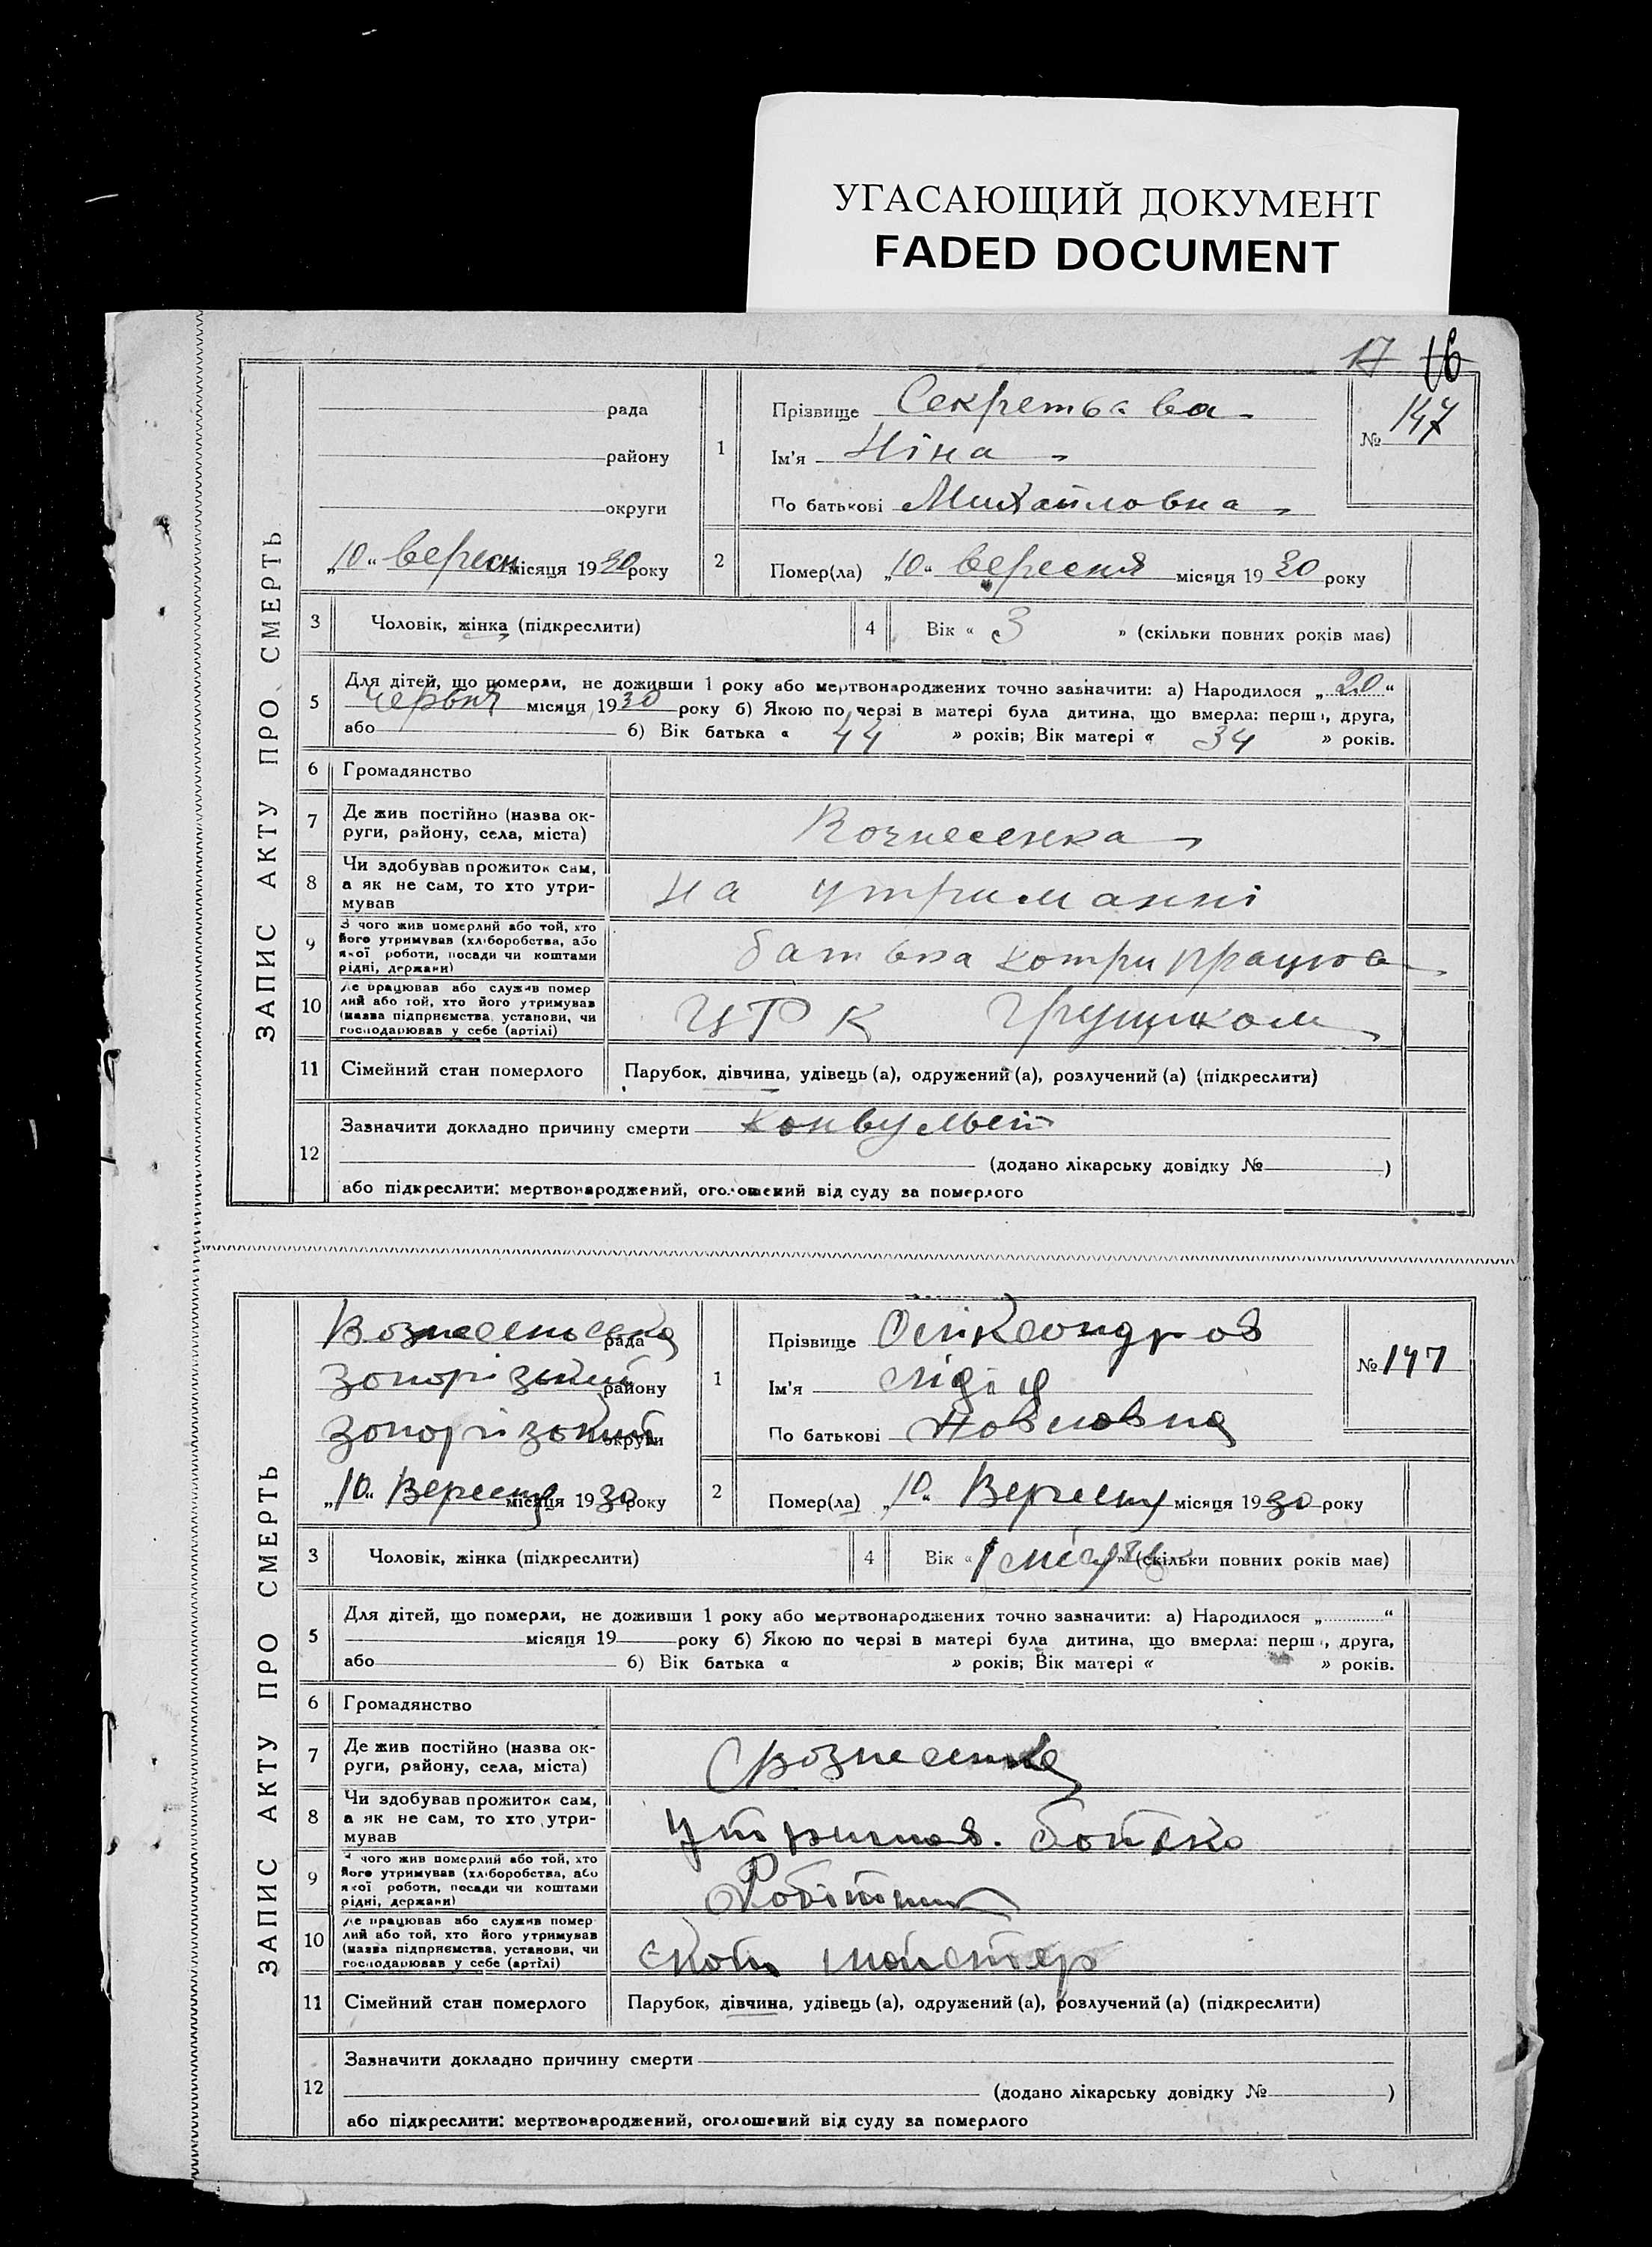 УГАСАЮЩИЙ ДОКУМЕНТ
FADED DOCUMENT
17 16
ЗАПИС АКТУ ПРО СМЕРТЬ
рада
району
округи
„10“ вересн місяця 1930 року
1
Прізвище
Ім'я Ніна
По батькові Михайловна
№ 147
2
Помер(ла) „10“ вересня місяця 1930 року
3 Чоловік, жінка (підкреслити)
4 Вік « 3 » (скільки повних років має)
5 Для дітей, що померли, не доживши 1 року або мертвонароджених точно зазначити: а) Народилося „20“
червня місяця 1930 року б) Якою по черзі в матері була дитина, що вмерла: перша, друга,
або б) Вік батька « 44 » років; Вік матері « 34 » років.
6 Громадянство
7 Де жив постійно (назва ок-
руги, району, села, міста)
Вознесенка
8 Чи здобував прожиток сам,
а як не сам, то хто утри-
мував
на утриманні
9 З чого жив померлий або той, хто
його утримував (хліборобства, або
якої роботи, посади чи коштами
рідні, держави)
батька котри працює
10 Де працював або служив помер
лий або той, хто його утримував
(назва підприємства, установи, чи
господарював у себе (артілі)
ЦРК грущиком
11 Сімейний стан померлого Парубок, дівчина, удівець (а), одружений (а), розлучений (а) (підкреслити)
12 Зазначити докладно причину смерти
(додано лікарську довідку № )
або підкреслити: мертвонароджений, оголошений від суду за померлого
ЗАПИС АКТУ ПРО СМЕРТЬ
Вознесенська рада
району
округи
„10“ Вересня місяця 1930 року
1
Прізвище
Ім'я Лідія
По батькові Повловна
№ 147
2
Помер(ла) „10“ Вересня місяця 1930 року
3 Чоловік, жінка (підкреслити)
4 Вік « 1 » (скільки повних років має)
5 Для дітей, що померли, не доживши 1 року або мертвонароджених точно зазначити: а) Народилося „ “
місяця 19 року б) Якою по черзі в матері була дитина, що вмерла: перша, друга,
або б) Вік батька « » років; Вік матері « » років.
6 Громадянство
7 Де жив постійно (назва ок-
руги, району, села, міста)
Вознесенка
8 Чи здобував прожиток сам,
а як не сам, то хто утри-
мував
утримав. ботько
9 З чого жив померлий або той, хто
його утримував (хліборобства, або
якої роботи, посади чи коштами
рідні, держави)
Робітник
10 Де працював або служив помер
лий або той, хто його утримував
(назва підприємства, установи, чи
господарював у себе (артілі)
11 Сімейний стан померлого Парубок, дівчина, удівець (а), одружений (а), розлучений (а) (підкреслити)
12 Зазначити докладно причину смерти
(додано лікарську довідку № )
або підкреслити: мертвонароджений, оголошений від суду за померлого